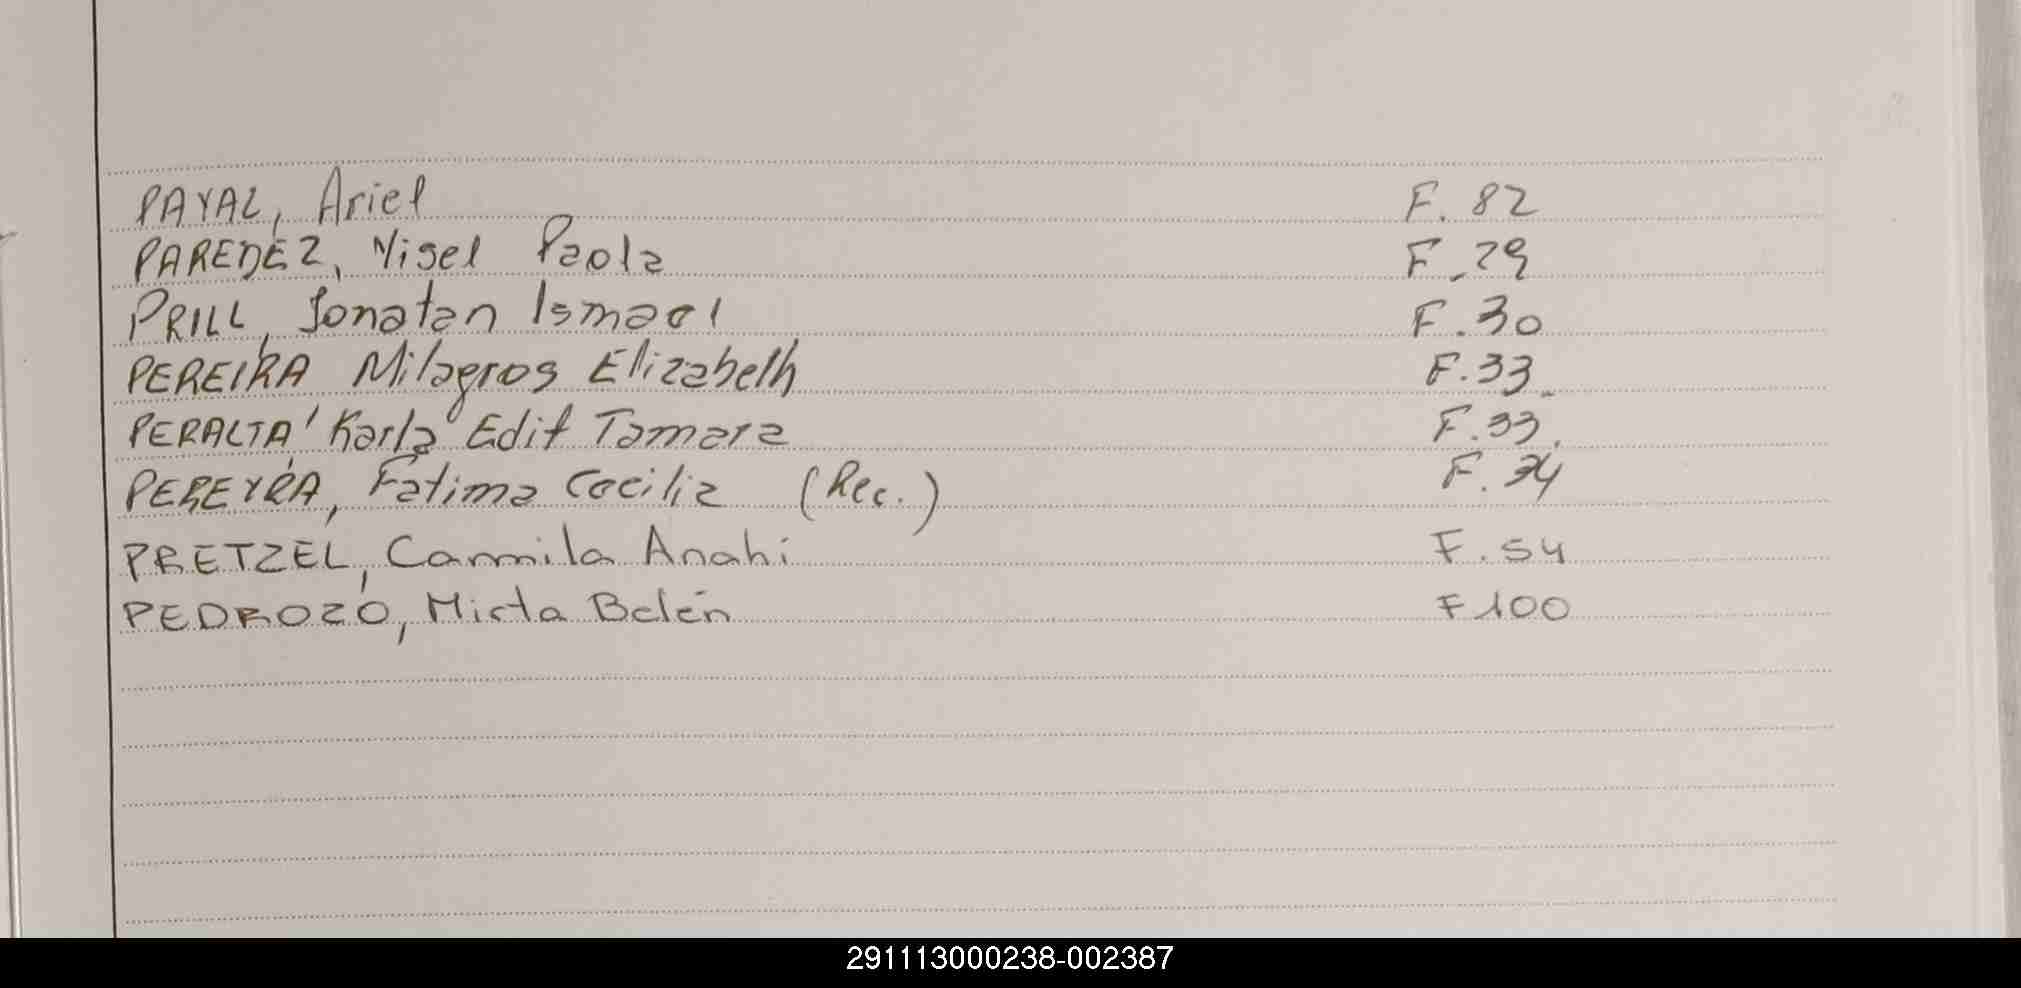 PAYAL, Ariel F. 82
PAREDEZ, Yisel Paola F. 29
PRILL, Jonatan Ismael F. 30
PEREIRA Milagros Elizabeth F. 33
PERALTA, Karla Edit Tamara F. 33
PEREYRA, Fatima Cecilia (Rec.) F. 34
PRETZEL, Camila Anahi F. 54
PEDROZO, Mirta Belén F 100
291113000238-002387